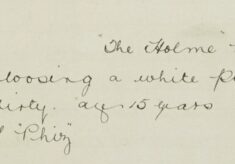 "The Holme"
loosing a white
dirty. age 15 years
"Phiz"